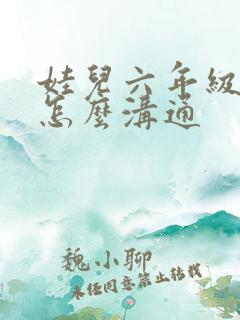 娃兒六年級
怎麼溝通
魏小聊
未經同意禁止轉載